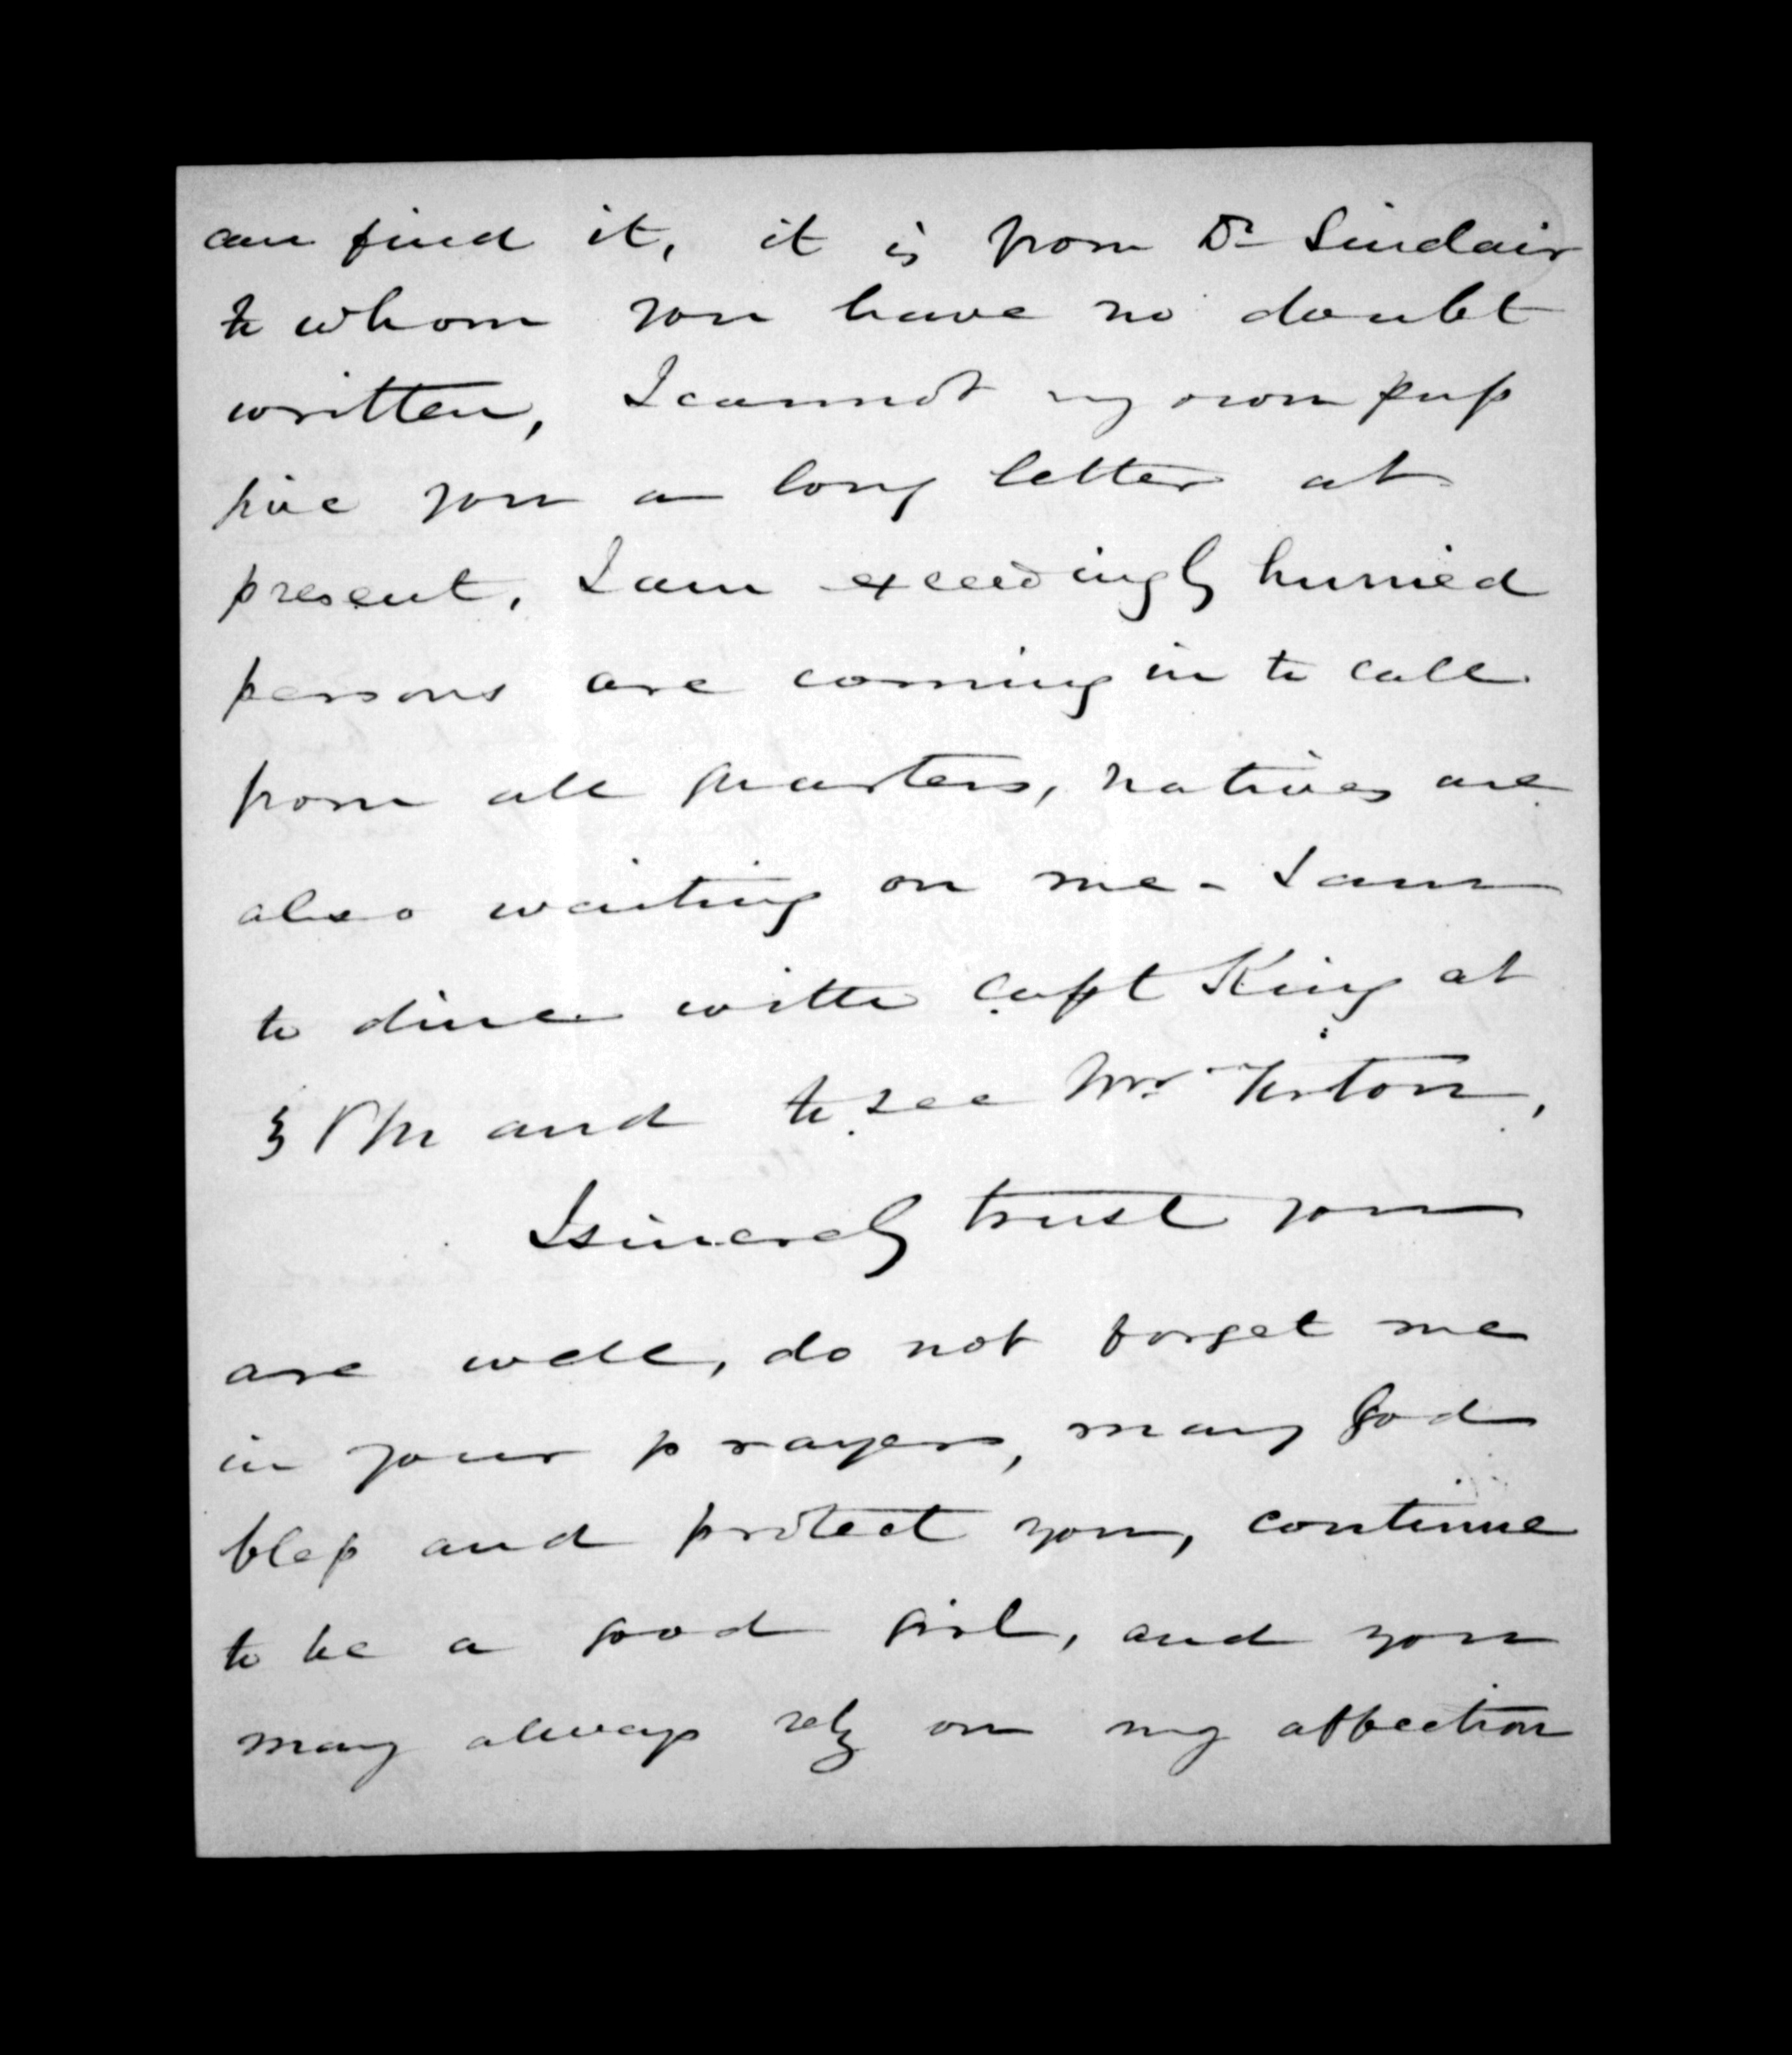 can find it, it is from Dr Sinclair
to whom you have no doubt
written, I cannot my own puss
give you a long letter at
present, I am exceedingly hurried
persons are coming in to call
from all quarters, natives are
also waiting on me - I am
to dine with Capt King at
3 PM and to see Mrs Turton,
I sincerely trust you
are well, do not forget me
in your prayers, may God
bless and protect you, continue
to be a good girl, and you
may always rely on my affection